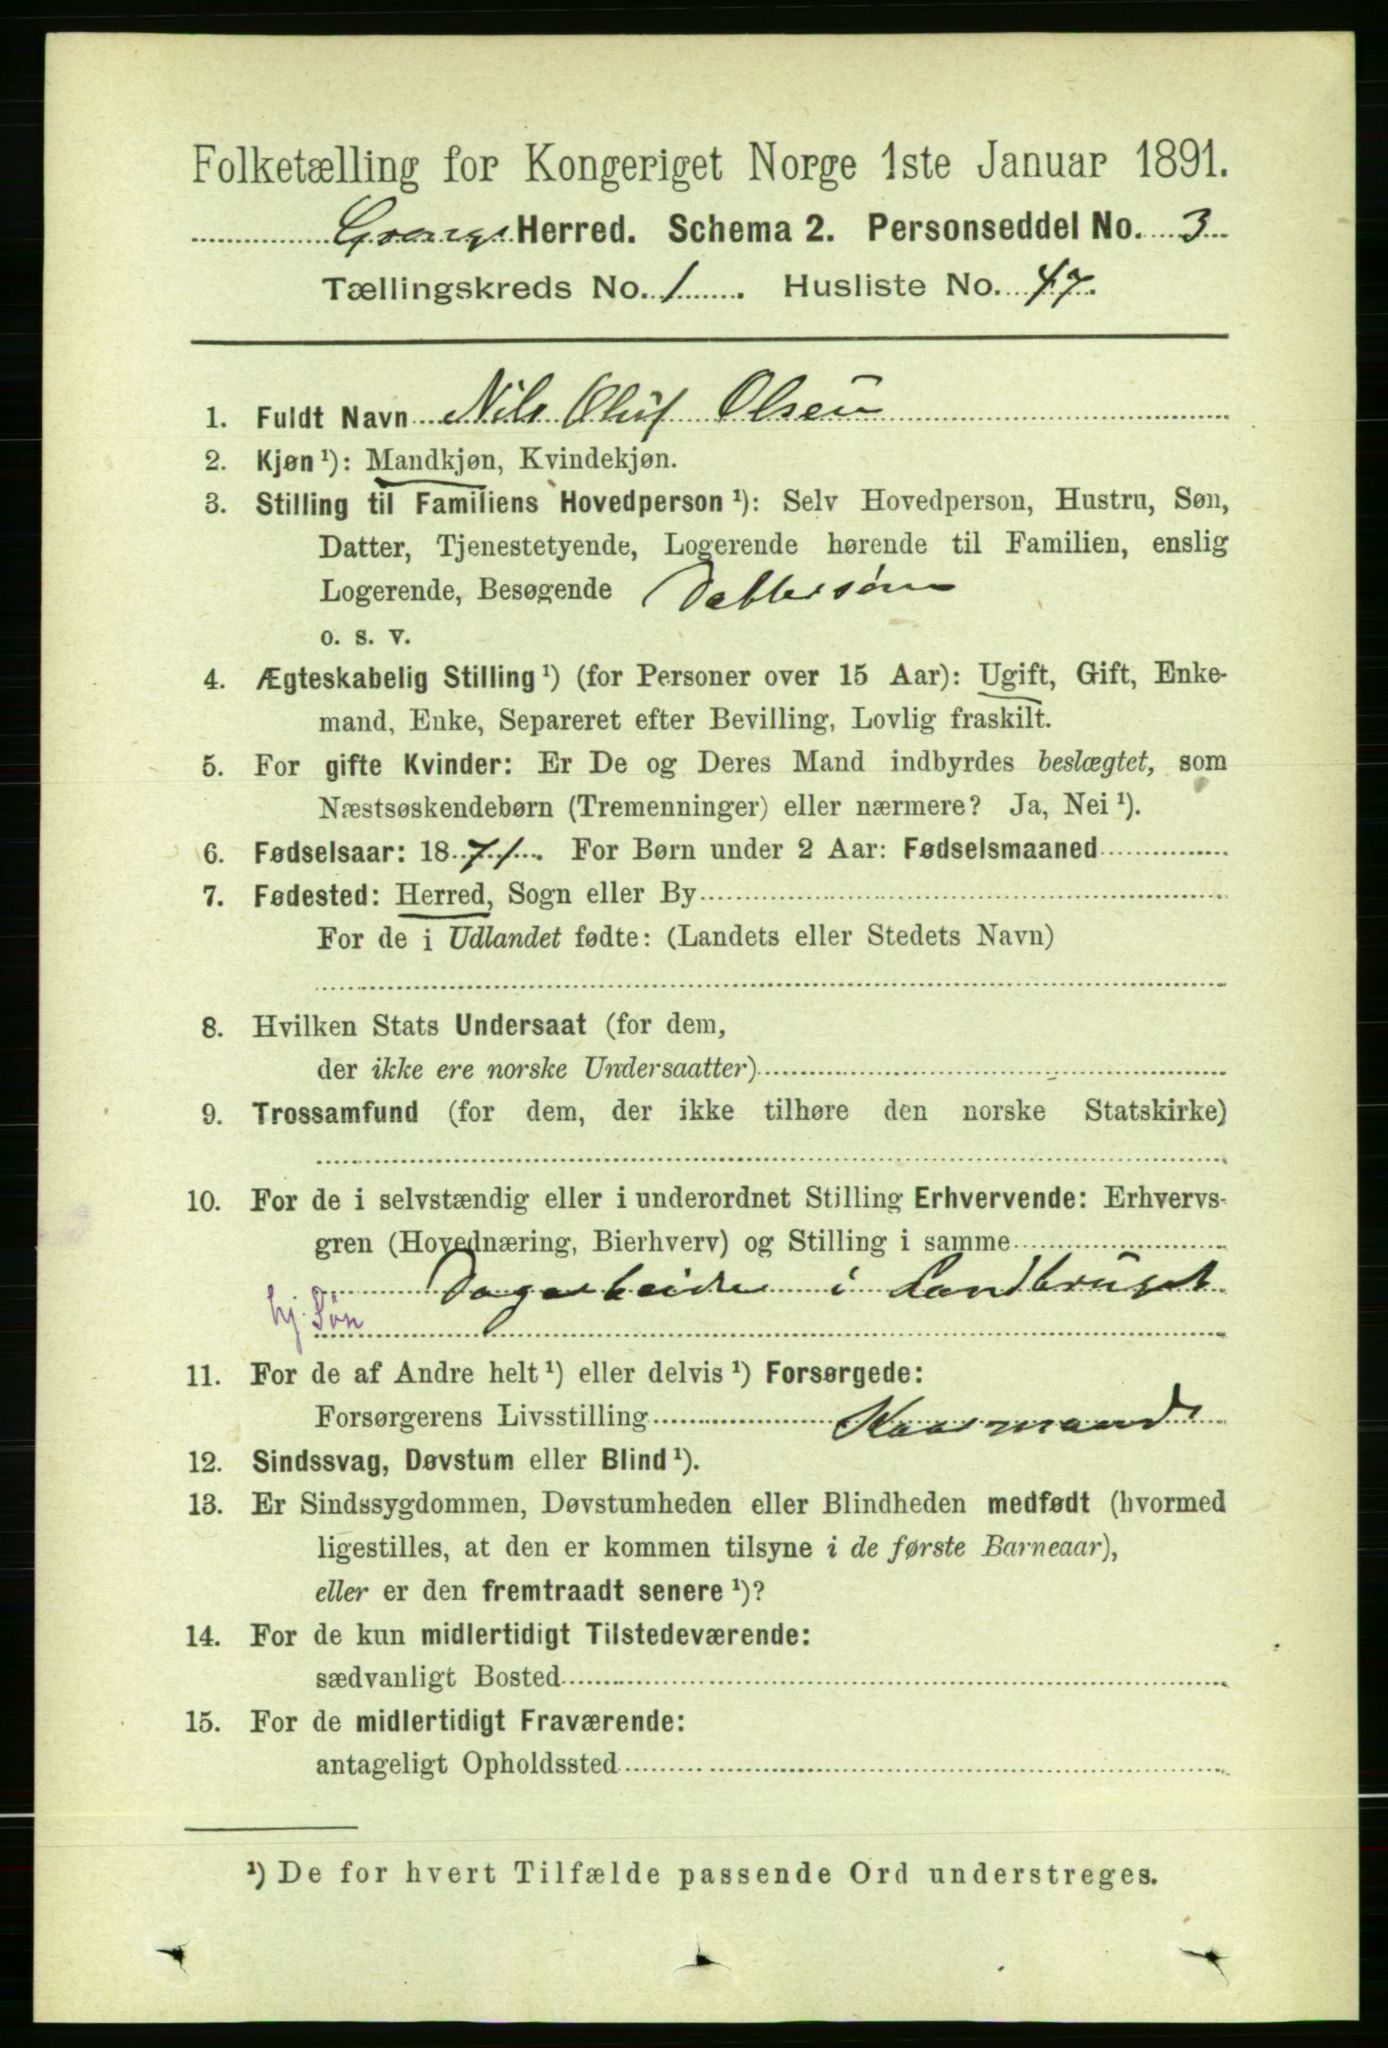 Folketælling for Kongeriget Norge 1ste Januar 1891.
Herred. Schema 2. Personseddel No. 3
Tællingskreds No. 1. Husliste No. 47.
1. Fuldt Navn Nils Oluf Olsen
2. Kjøn ¹): Mandkjøn, Kvindekjøn.
3. Stilling til Familiens Hovedperson ¹): Selv Hovedperson, Hustru, Søn,
Datter, Tjenestetyende, Logerende hørende til Familien, enslig
Logerende, Besøgende Dattersøn
o. s. v.
4. Ægteskabelig Stilling ¹) (for Personer over 15 Aar): Ugift, Gift, Enke-
mand, Enke, Separeret efter Bevilling, Lovlig fraskilt.
5. For gifte Kvinder: Er De og Deres Mand indbyrdes beslægtet, som
Næstsøskendebørn (Tremenninger) eller nærmere? Ja, Nei ¹).
6. Fødselsaar: 1871. For Børn under 2 Aar: Fødselsmaaned
7. Fødested: Herred, Sogn eller By
For de i Udlandet fødte: (Landets eller Stedets Navn)
8. Hvilken Stats Undersaat (for dem,
der ikke ere norske Undersaatter)
9. Trossamfund (for dem, der ikke tilhøre den norske Statskirke)
10. For de i selvstændig eller i underordnet Stilling Erhvervende: Erhvervs-
gren (Hovednæring, Bierhverv) og Stilling i samme
Dagarbeider i Landbruget
hj. Søn
11. For de af Andre helt ¹) eller delvis ¹) Forsørgede:
Forsørgerens Livsstilling Kaarmand
12. Sindssvag, Døvstum eller Blind ¹).
13. Er Sindssygdommen, Døvstumheden eller Blindheden medfødt (hvormed
ligestilles, at den er kommen tilsyne i de første Barneaar),
eller er den fremtraadt senere ¹)?
14. For de kun midlertidigt Tilstedeværende:
sædvanligt Bosted
15. For de midlertidigt Fraværende:
antageligt Opholdssted
¹) De for hvert Tilfælde passende Ord understreges.